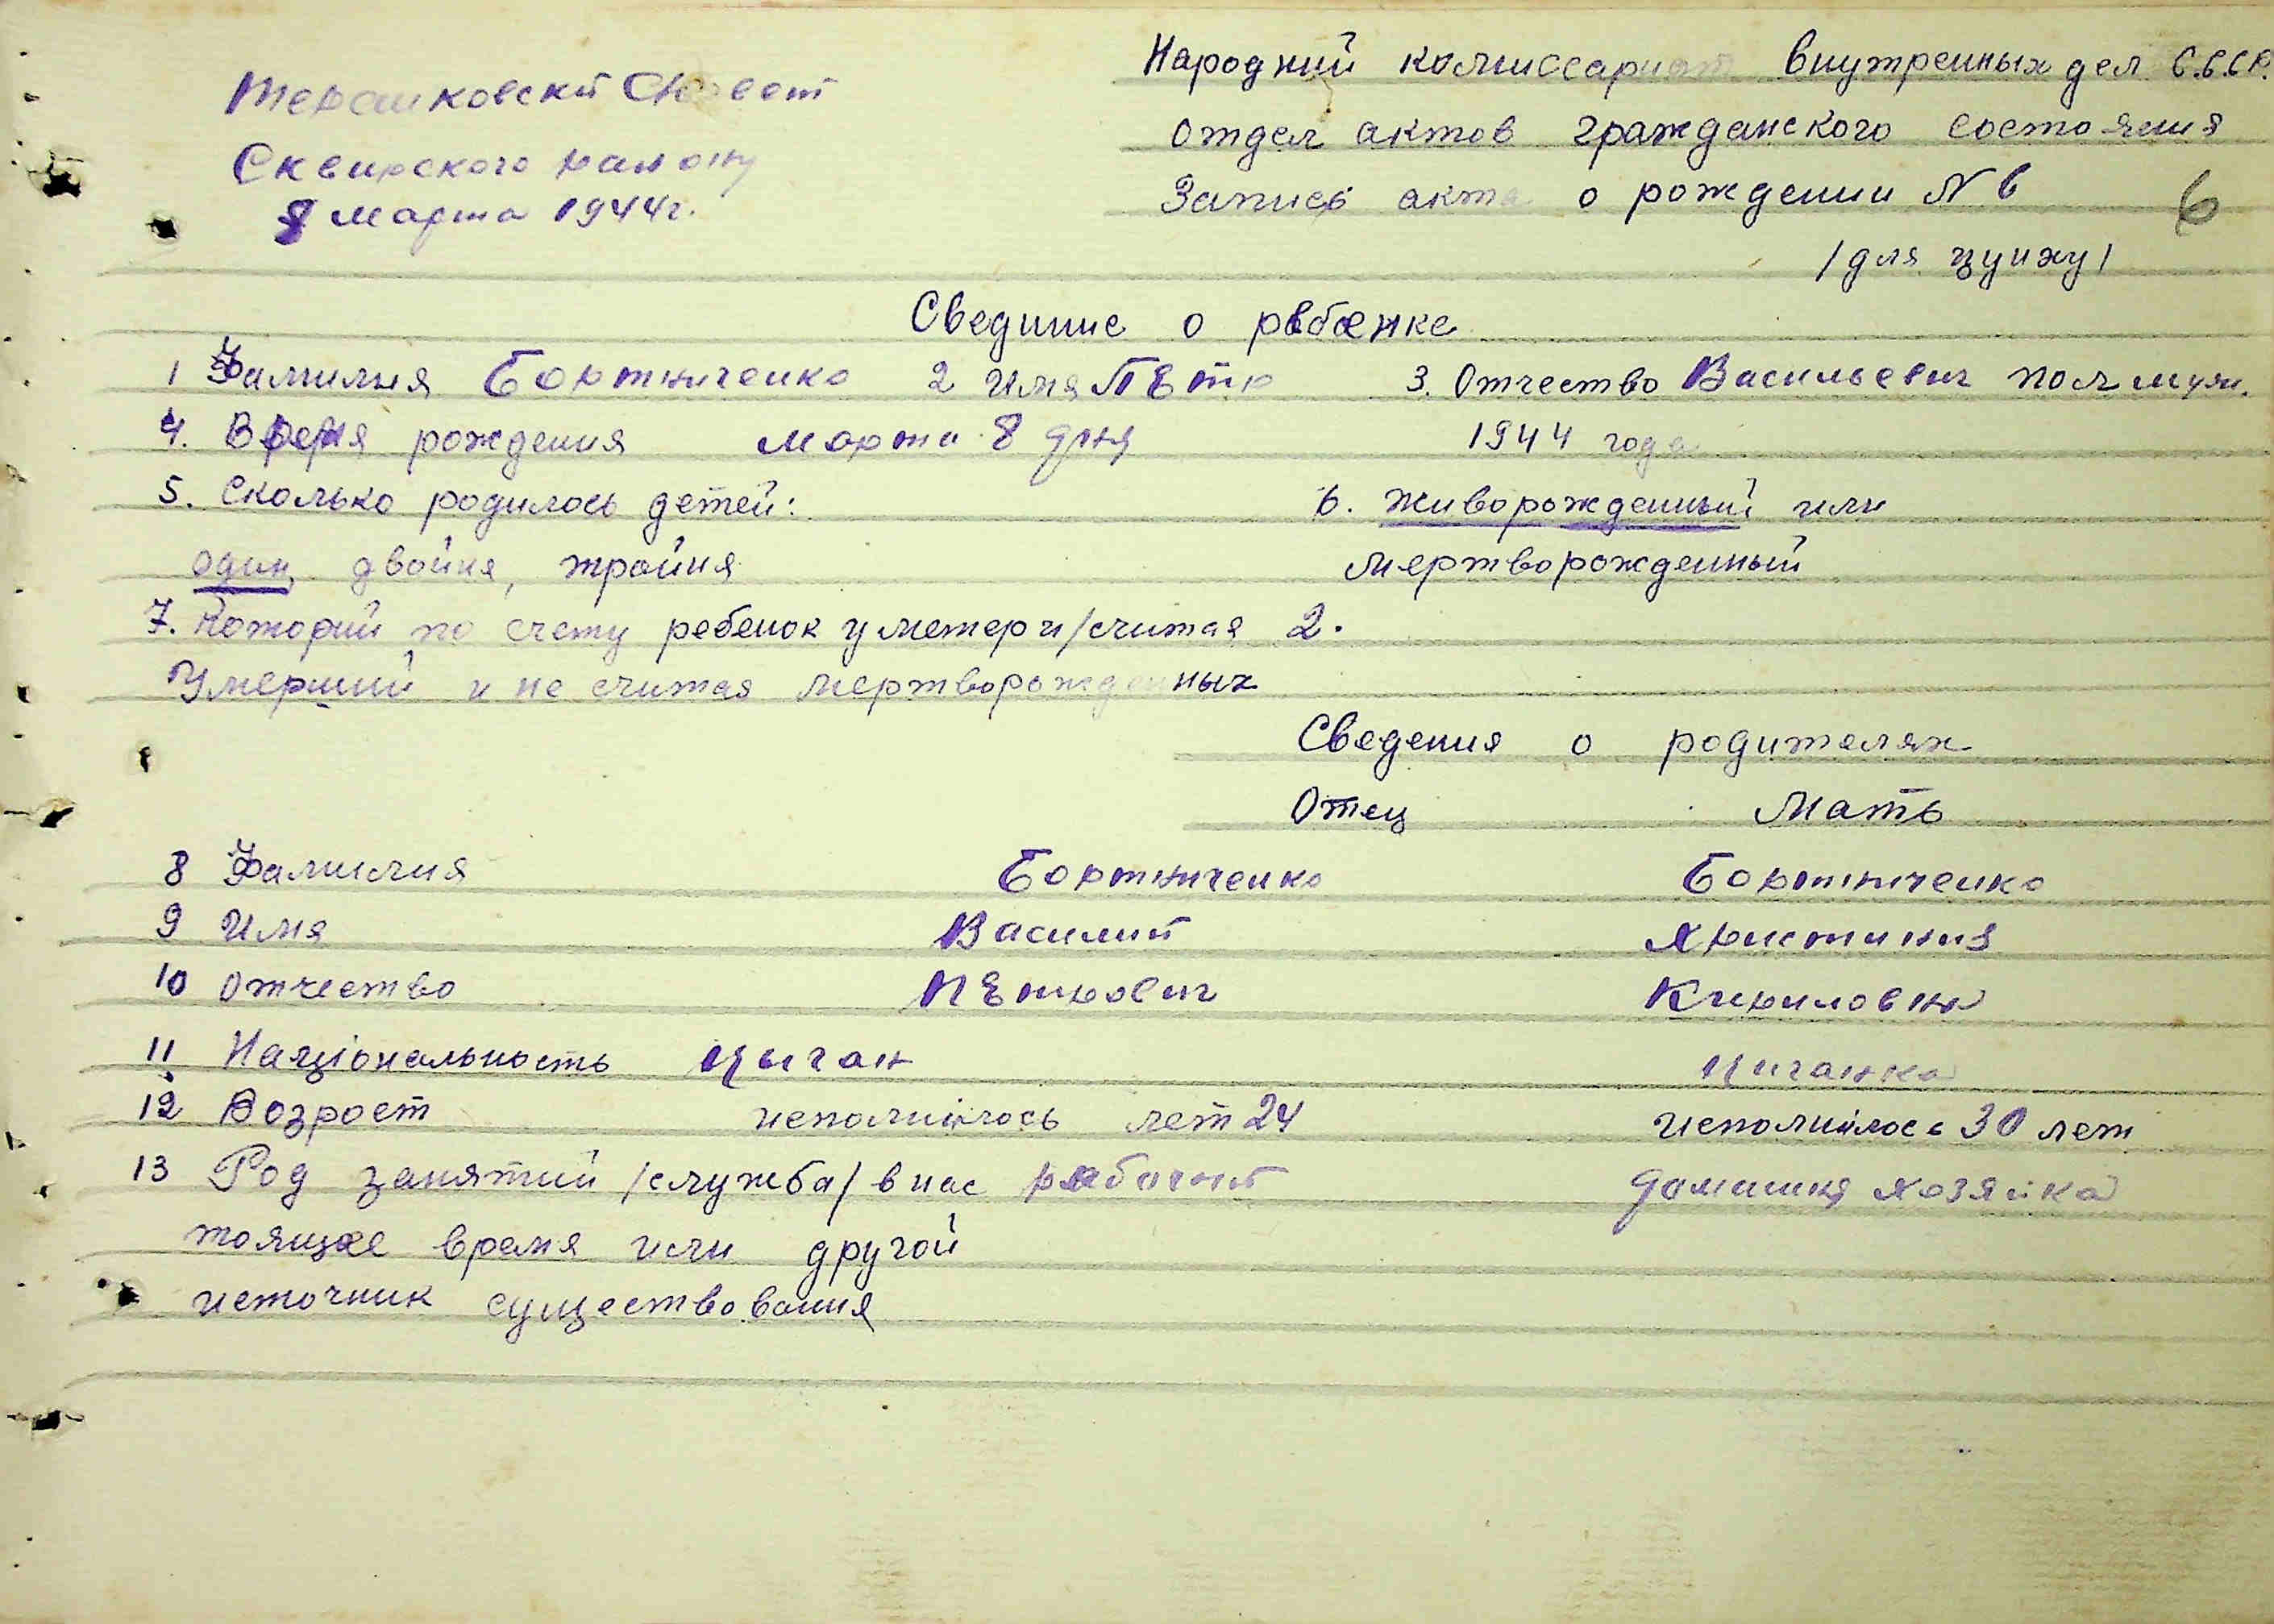 Терешковский С/Совет
Сквирского району
8 марта 1944г.
Народний комиссариат внутренных дел С.С.С.Р.
Отдел актов гражданского состояния
Запись акта о рождении N 6
6
/для цунху/
Свединие о ребенке
1 Фамилия Бортниченко 2 Имя ПЕтр 3. Отчество Васильевич пол муж.
4. Время рождения марта 8 дня 1944 года
5. Сколько родилось детей: 6. живорожденный или
один, двойня, тройня мертворожденный
7. Которий по счету ребенок у матери /считая 2.
Умерший и не считая мертворожденных
Сведения о родителях
Отец Мать
8 Фамилия Бортниченко Бортниченко
9 Имя Василий Христиния
10 Отчество ПЕтрович Кириловна
11 Національность Цыган Циганка
12 Возрост исполнілось лет 24 исполнілось 30 лет
13 Род занятий /служба/ в нас домашня хозяйка
тоящее время или другой
источник существования